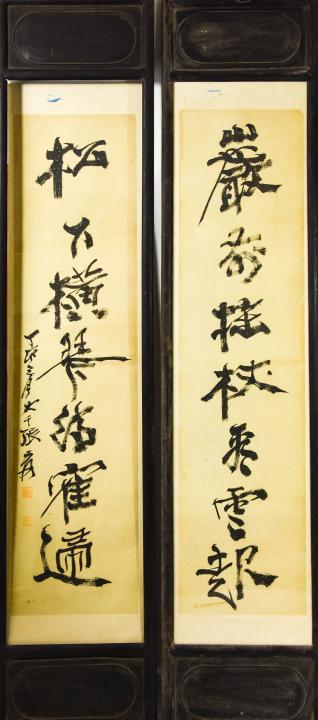 巖前拄杖看雲起
松下橫琴待鶴歸
丁卯三月大千張爰